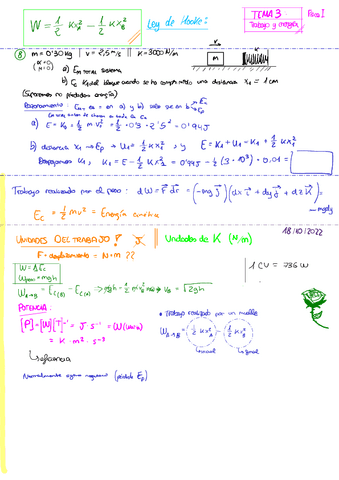 W = 1/2 K x²A − 1/2 K x²B
Ley de Hooke:
TEMA 3
Trabajo y energía
Para I
⑧ m = 0'30 kg | v = 2,5 m/s || K = 3000 N/m
m
a) Em total sistema
b) Ec cuando se ha comprimido una distancia x1 = 1 cm
(Suponemos no pérdidas energía)
Razonamiento:
a) E = K0 = 1/2 m v0² = 1/2 · 0'3 · 2'5² = 0'94 J
b) distancia x1 → Ep → U1 = 1/2 K x1² ; y E = K1 + U1 → K1 + 1/2 K x1²
Despejamos K1, K1 = E − 1/2 K x1² = 0'94 J − 1/2 (3 · 10³) · 0,01 =
Trabajo realizado por el peso: dW = F dr = (−mg j) (dx i + dy j + dz K) =
−mgdy
Ec = 1/2 mv² = Energía cinética
18/10/2022
UNIDADES DEL TRABAJO? J
Unidades de K (N/m)
F · desplazamiento = N · m ??
W = ΔEc
Wpeso = mgh
1 CV = 736 W
WA→B = Ec(B) − Ec(A) => mgh = 1/2 m vB² → vB = √2gh
POTENCIA:
[P] = [W][T]⁻¹ = J s⁻¹ = W (Watt)
= K · m² · s⁻³
• Trabajo realizado por un muelle
WA→B = (1/2 K x²A) − (1/2 K x²B)
inicial
final
↳ eficiencia
Normalmente signo negativo (pérdida Ep)